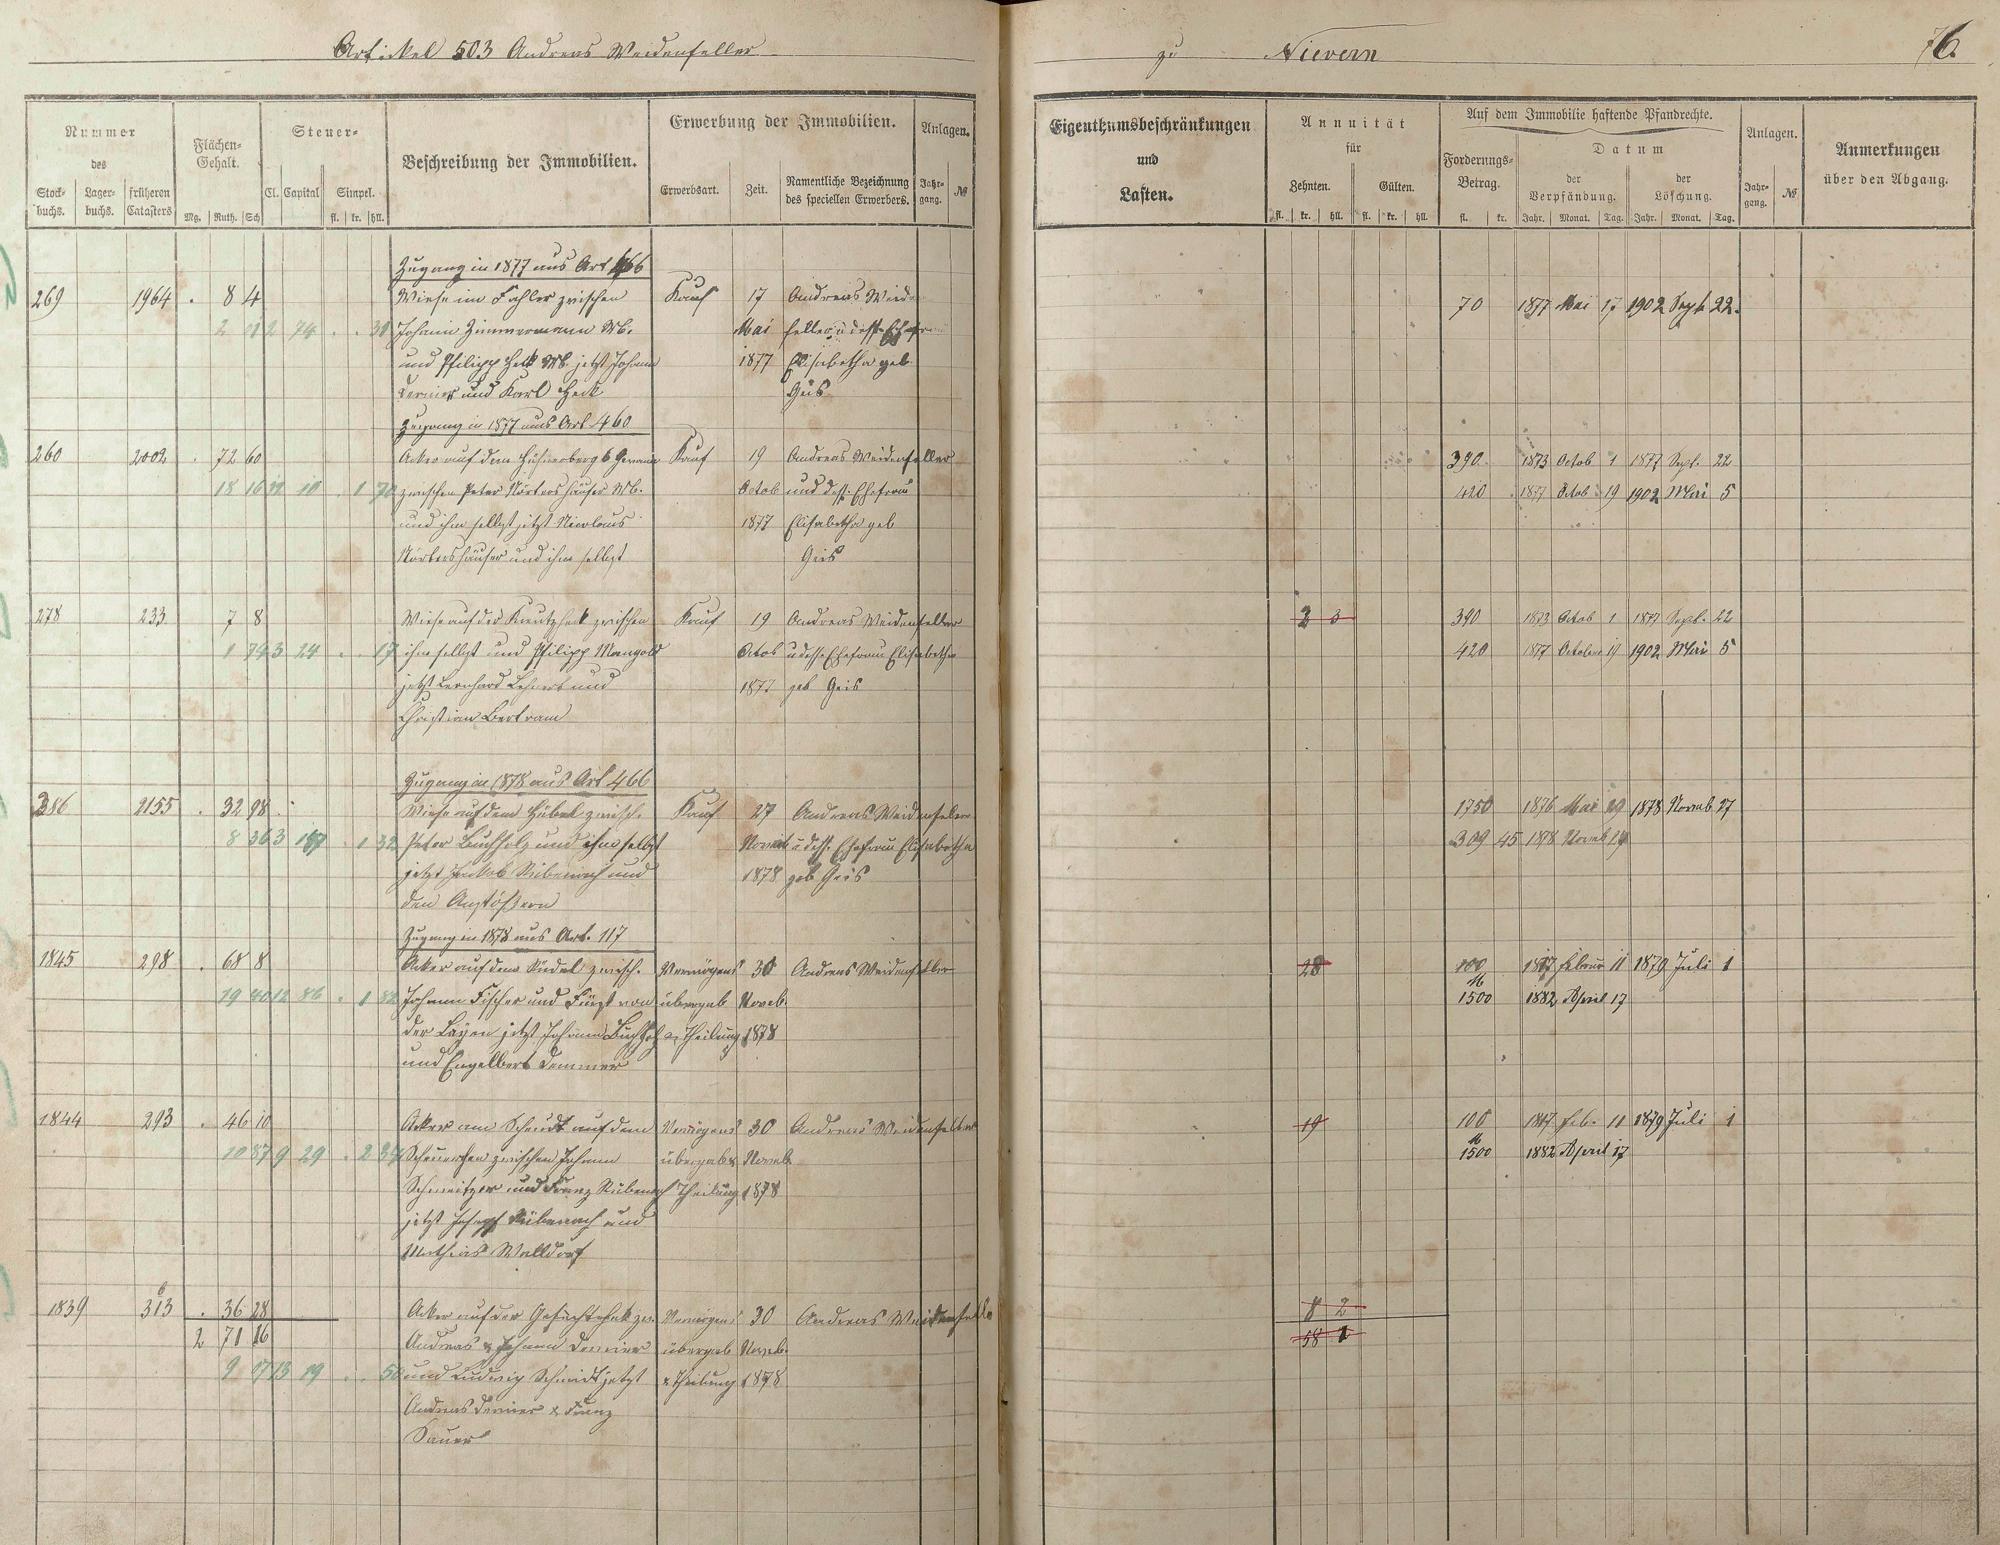 Artikel 503 Andreas Weidenfeller
zu Nievern
76.
Nummer
des
Stockbuchs.
Lagerbuchs.
früheren Catasters
Flächen-Gehalt.
Mg. Ruth. Sch
Steuer-
Cl. Capital Simpel.
fl. kr. hll.
Beschreibung der Immobilien.
Erwerbung der Immobilien.
Erwerbsart. Zeit. Namentliche Bezeichnung des speciellen Erwerbers.
Anlagen.
Jahrgang. №
Eigenthumsbeschränkungen
und
Lasten.
Annuität
für
Zehnten. Gülten.
fl. kr. hll. fl. kr. hll.
Auf dem Immobilie haftende Pfandrechte.
Forderungs-Betrag.
fl. kr.
Datum
der Verpfändung. der Löschung.
Jahr. Monat. Tag. Jahr. Monat. Tag.
Anlagen.
Jahrgang. №
Anmerkungen
über den Abgang.
Zugang in 1877 aus Art 466
269 1964 . 8 4 Wiese im Fahler zwischen Kauf 17 Andreas Weiden 70 1877 Mai 17 1902 Sept 22.
2 01 2 74 . . 31 Johann Zimmermann Wb. Mai feller u dess Ehefrau
und Philipp Heck Wb. jetzt Johann 1877 Elisabetha geb
und Karl Heck Geis
Zugang in 1877 aus Art 460
260 2002 . 72 60 Acker auf dem Hühnerberg 6 Gewann Kauf 19 Andreas Weidenfeller 390. 1873 Octob 1 1877 Sept. 22
18 16 . 1 zwischen Peter Nörtershäuser Wb. Octob und dess. Ehefrau 420 1877 Octob 19 1902 Mai 5
und ihm selbst jetzt Nicolaus 1877 Elisabetha geb
Nörtershäuser und ihm selbst Geis
278 233 7 8 Wiese auf der zwischen Kauf 19 Andreas Weidenfeller 2 3 390 1873 Octob 1 1877 Sept. 22
1 74 3 24 . . 17 ihm selbst und Philipp Mangold Octob u dess Ehefrau Elisabetha 420 1877 Octob 19 1902 Mai 5
jetzt Bernhard Lehnert und 1877 geb Geis
Christian Bertram
Zugang in 1878 aus Art 466
286 2155 . 32 98 Wiese auf dem Hübel zwisch. Kauf 27 Andreas Weidenfeller 1750 1876 Mai 29 1878 Novemb 27
8 36 3 . 1 32 Peter Buchholz und ihm selbst Novemb u dess. Ehefrau Elisabetha 309 45 1878 Novemb 27
jetzt Jakob Rübenach und 1878 geb Geis
den Anstößern
Zugang in 1878 aus Art. 117
1845 298 . 68 8 Acker auf dem zwisch. Vermögens 30 Andreas Weidenfeller 28 100 Februar 11 1879 Juli 1
12 86 . 1 Johann Fischer und Fürst von übergab Novb. 1500 1882 April 17
der Layen jetzt Johann Buchholz & Theilung 1878
und Engelbert Demmer
1844 293 . 46 10 Acker am Scheidt auf dem Vermögens 30 Andreas Weidenfeller 19 100 Feb. 11 1879 Juli 1
9 29 . 2 zwischen Johann übergab & Novemb. 1500 1882 April 17
Schweitzer und Franz Rübenach Theilung 1878
jetzt Joseph Rübenach und
Mathias Walldorf
1839 313 . 36 28 Acker auf der Vermögens 30 Andreas Weidenfeller 8 2
2 71 16 Andreas & Johann übergab Novb. 58 1
9 07 13 19 . . 50 und Ludwig Schmidt jetzt & Theilung 1878
Andreas & Franz
Sauer